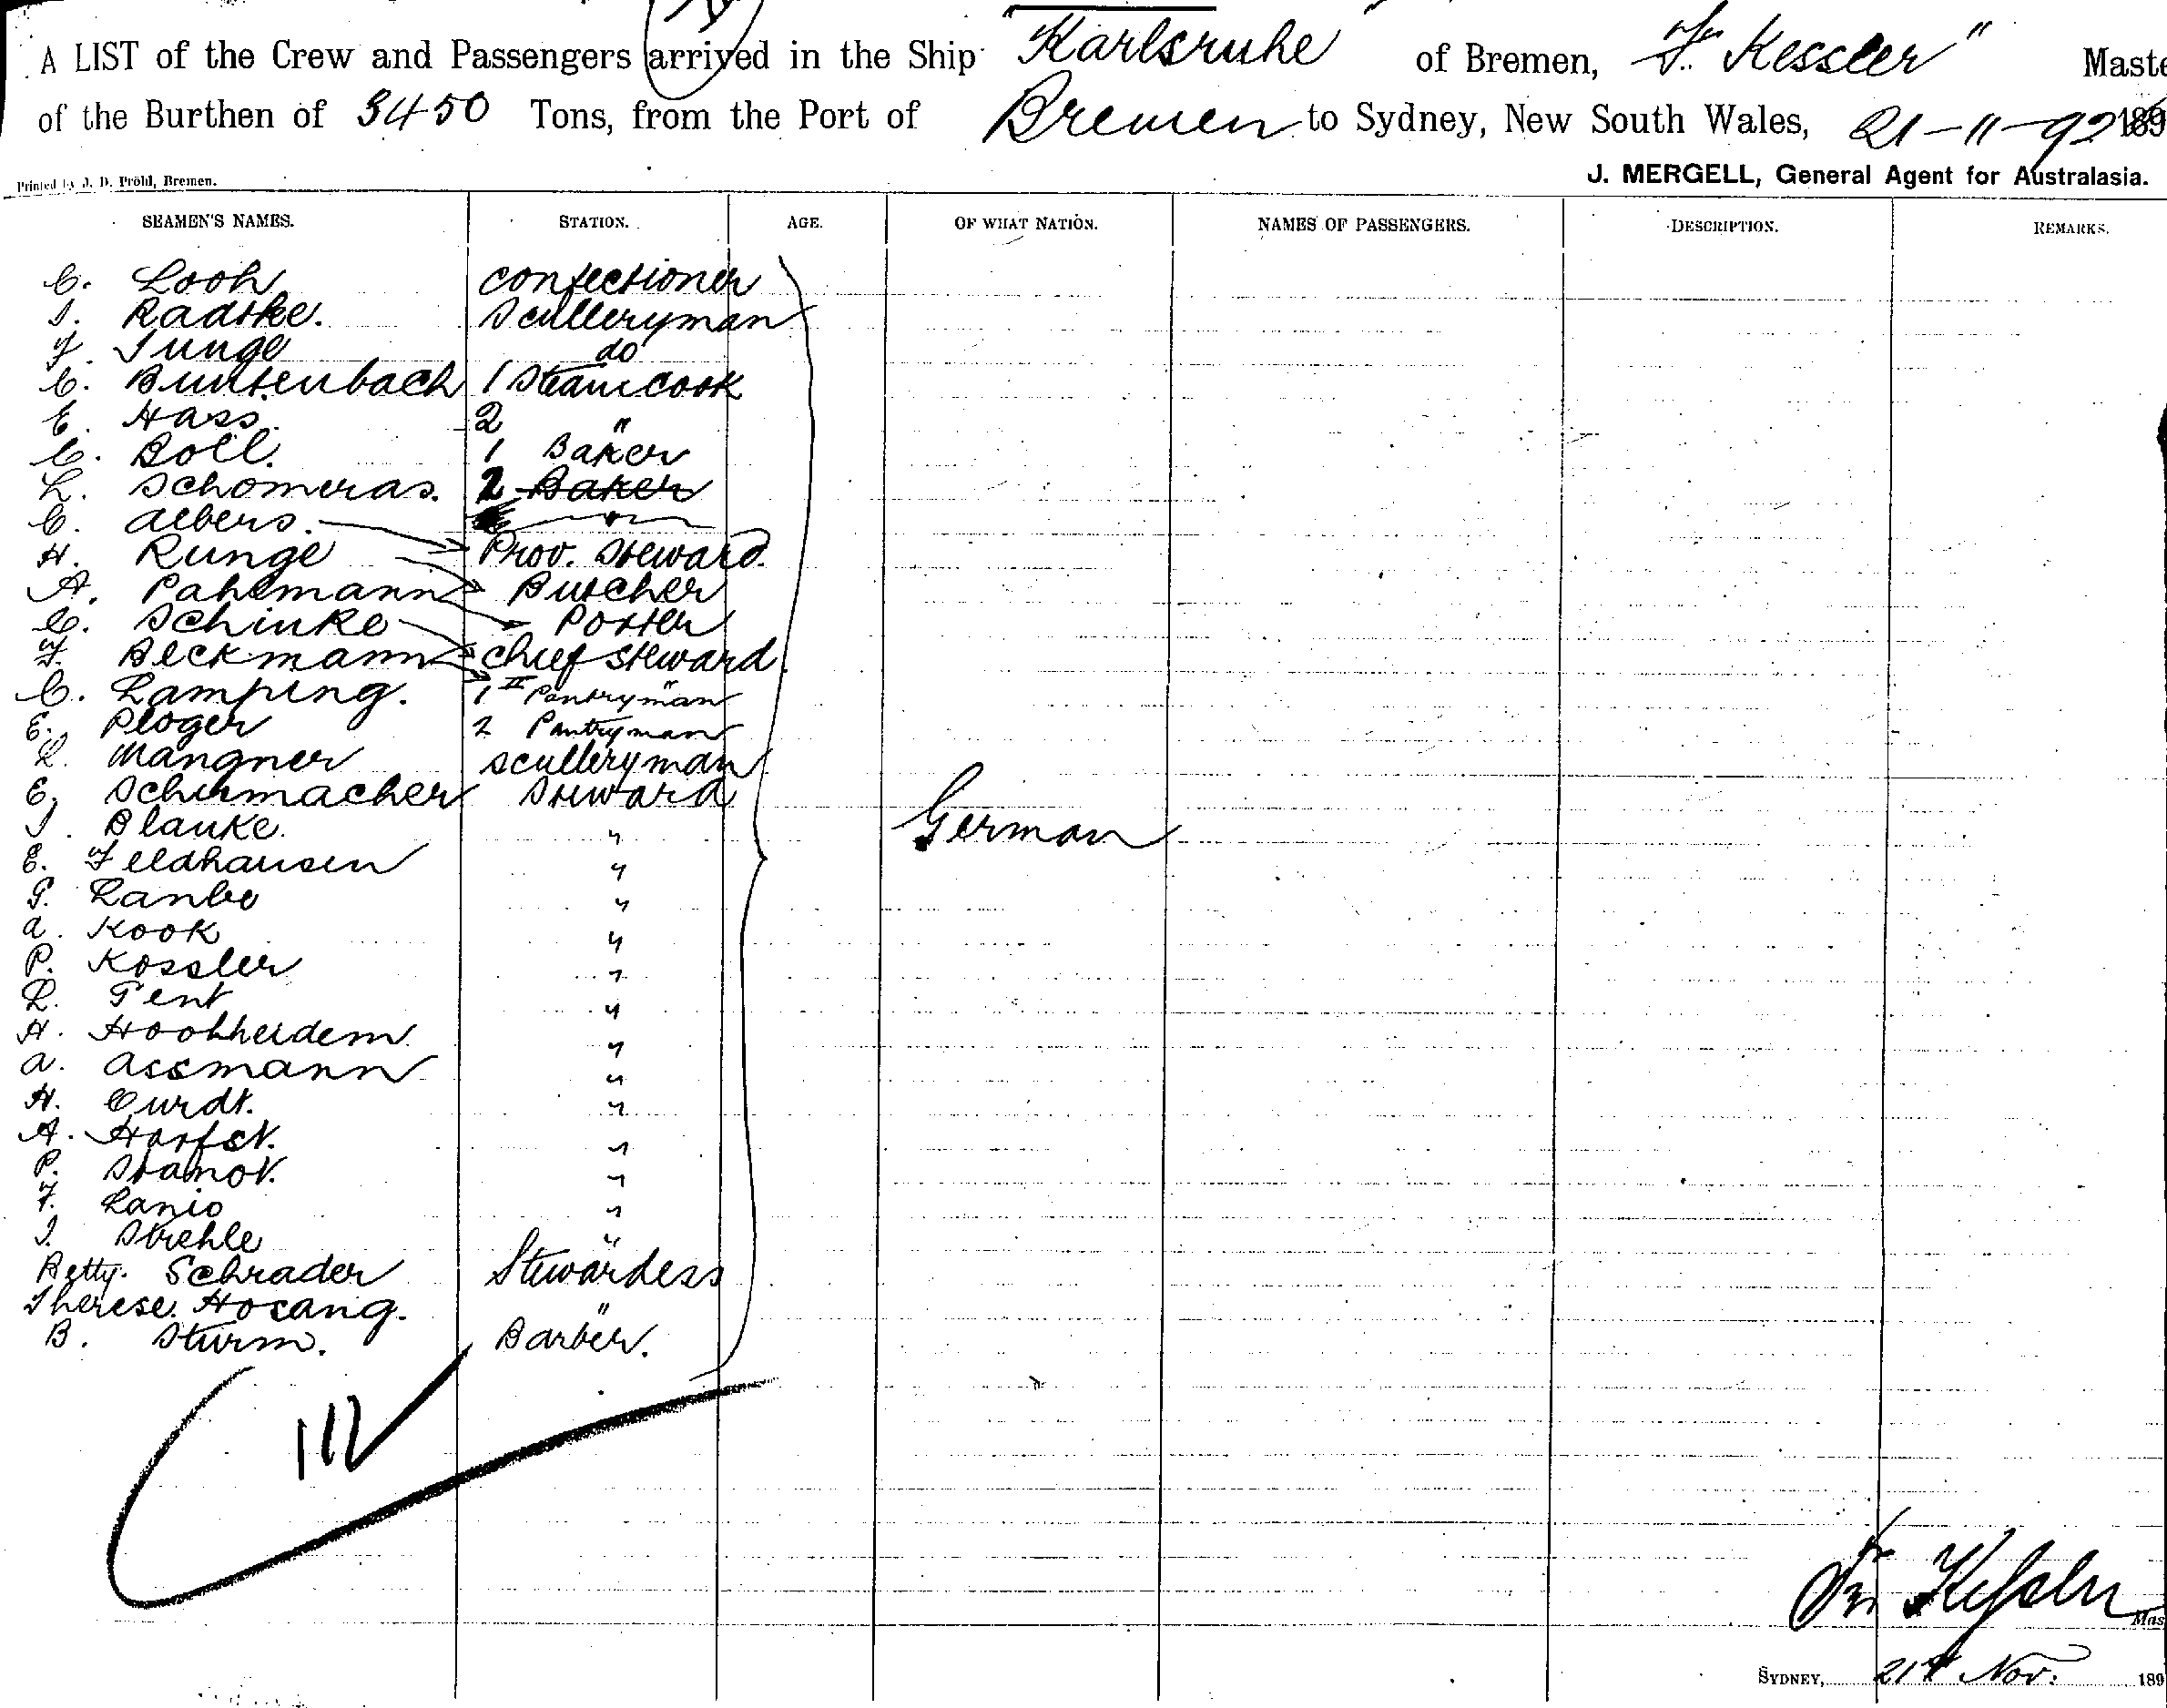 A LIST of the Crew and Passengers arrived in the Ship "Karlsruhe" of Bremen, Fr. Kessler" Maste
of the Burthen of 3450 Tons, from the Port of Bremen to Sydney, New South Wales, 21-11-92 189
J. MERGELL, General Agent for Australasia.
Printed by J. D. Pröhl, Bremen.
SEAMEN'S NAMES. STATION. AGE. OF WHAT NATION. NAMES OF PASSENGERS. DESCRIPTION. REMARKS.
C. Looh confectioner
J. Radtke. Sculleryman
F. Junge do
C. Buntenbach 1 Steamcook
E. Hass. 2 "
C. Boll. 1 Baker
L. Schomeras. 2 Baker
C. Albers.
H. Runge Prov. Steward.
A. Pahlmann Butcher
C. Schinke Porter
F. Beckmann chief steward.
C. Lamping. 1 II Pantryman
E. Ploger 2 Pantryman
L. Mangner scullery man
E. Schumacher Steward
J. Blanke. "
E. Feldhausen "
G. Lanbe "
A. Kook "
P. Kossler "
R. Gent "
H. Hoohheidem "
A. Assmann "
H. Curdt. "
A. Harfst. "
P. Stamot. "
F. Lanio "
J. Strehle "
German
Betty. Schrader Stewardess
Therese Hosang. "
B. Sturm. Barber.
Fr. Kessler
Mas
SYDNEY, 21st Nov. 189